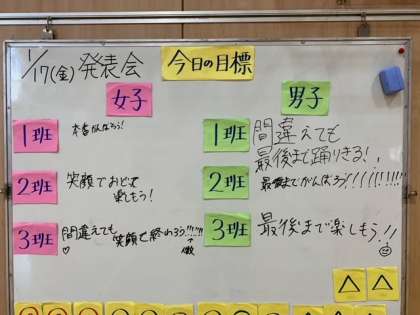 1/17(金) 発表会
今日の目標
女子
1班 本番がんばろう!
2班 笑顔でおどって
楽しもう!
3班 間違えても
笑顔で終わろう!!!!!
♡
男子
1班 間違えても
最後まで踊りきる!
2班 最後までがんばろう!!!!!!!!!
3班 最後まで楽しもう!!
△ △